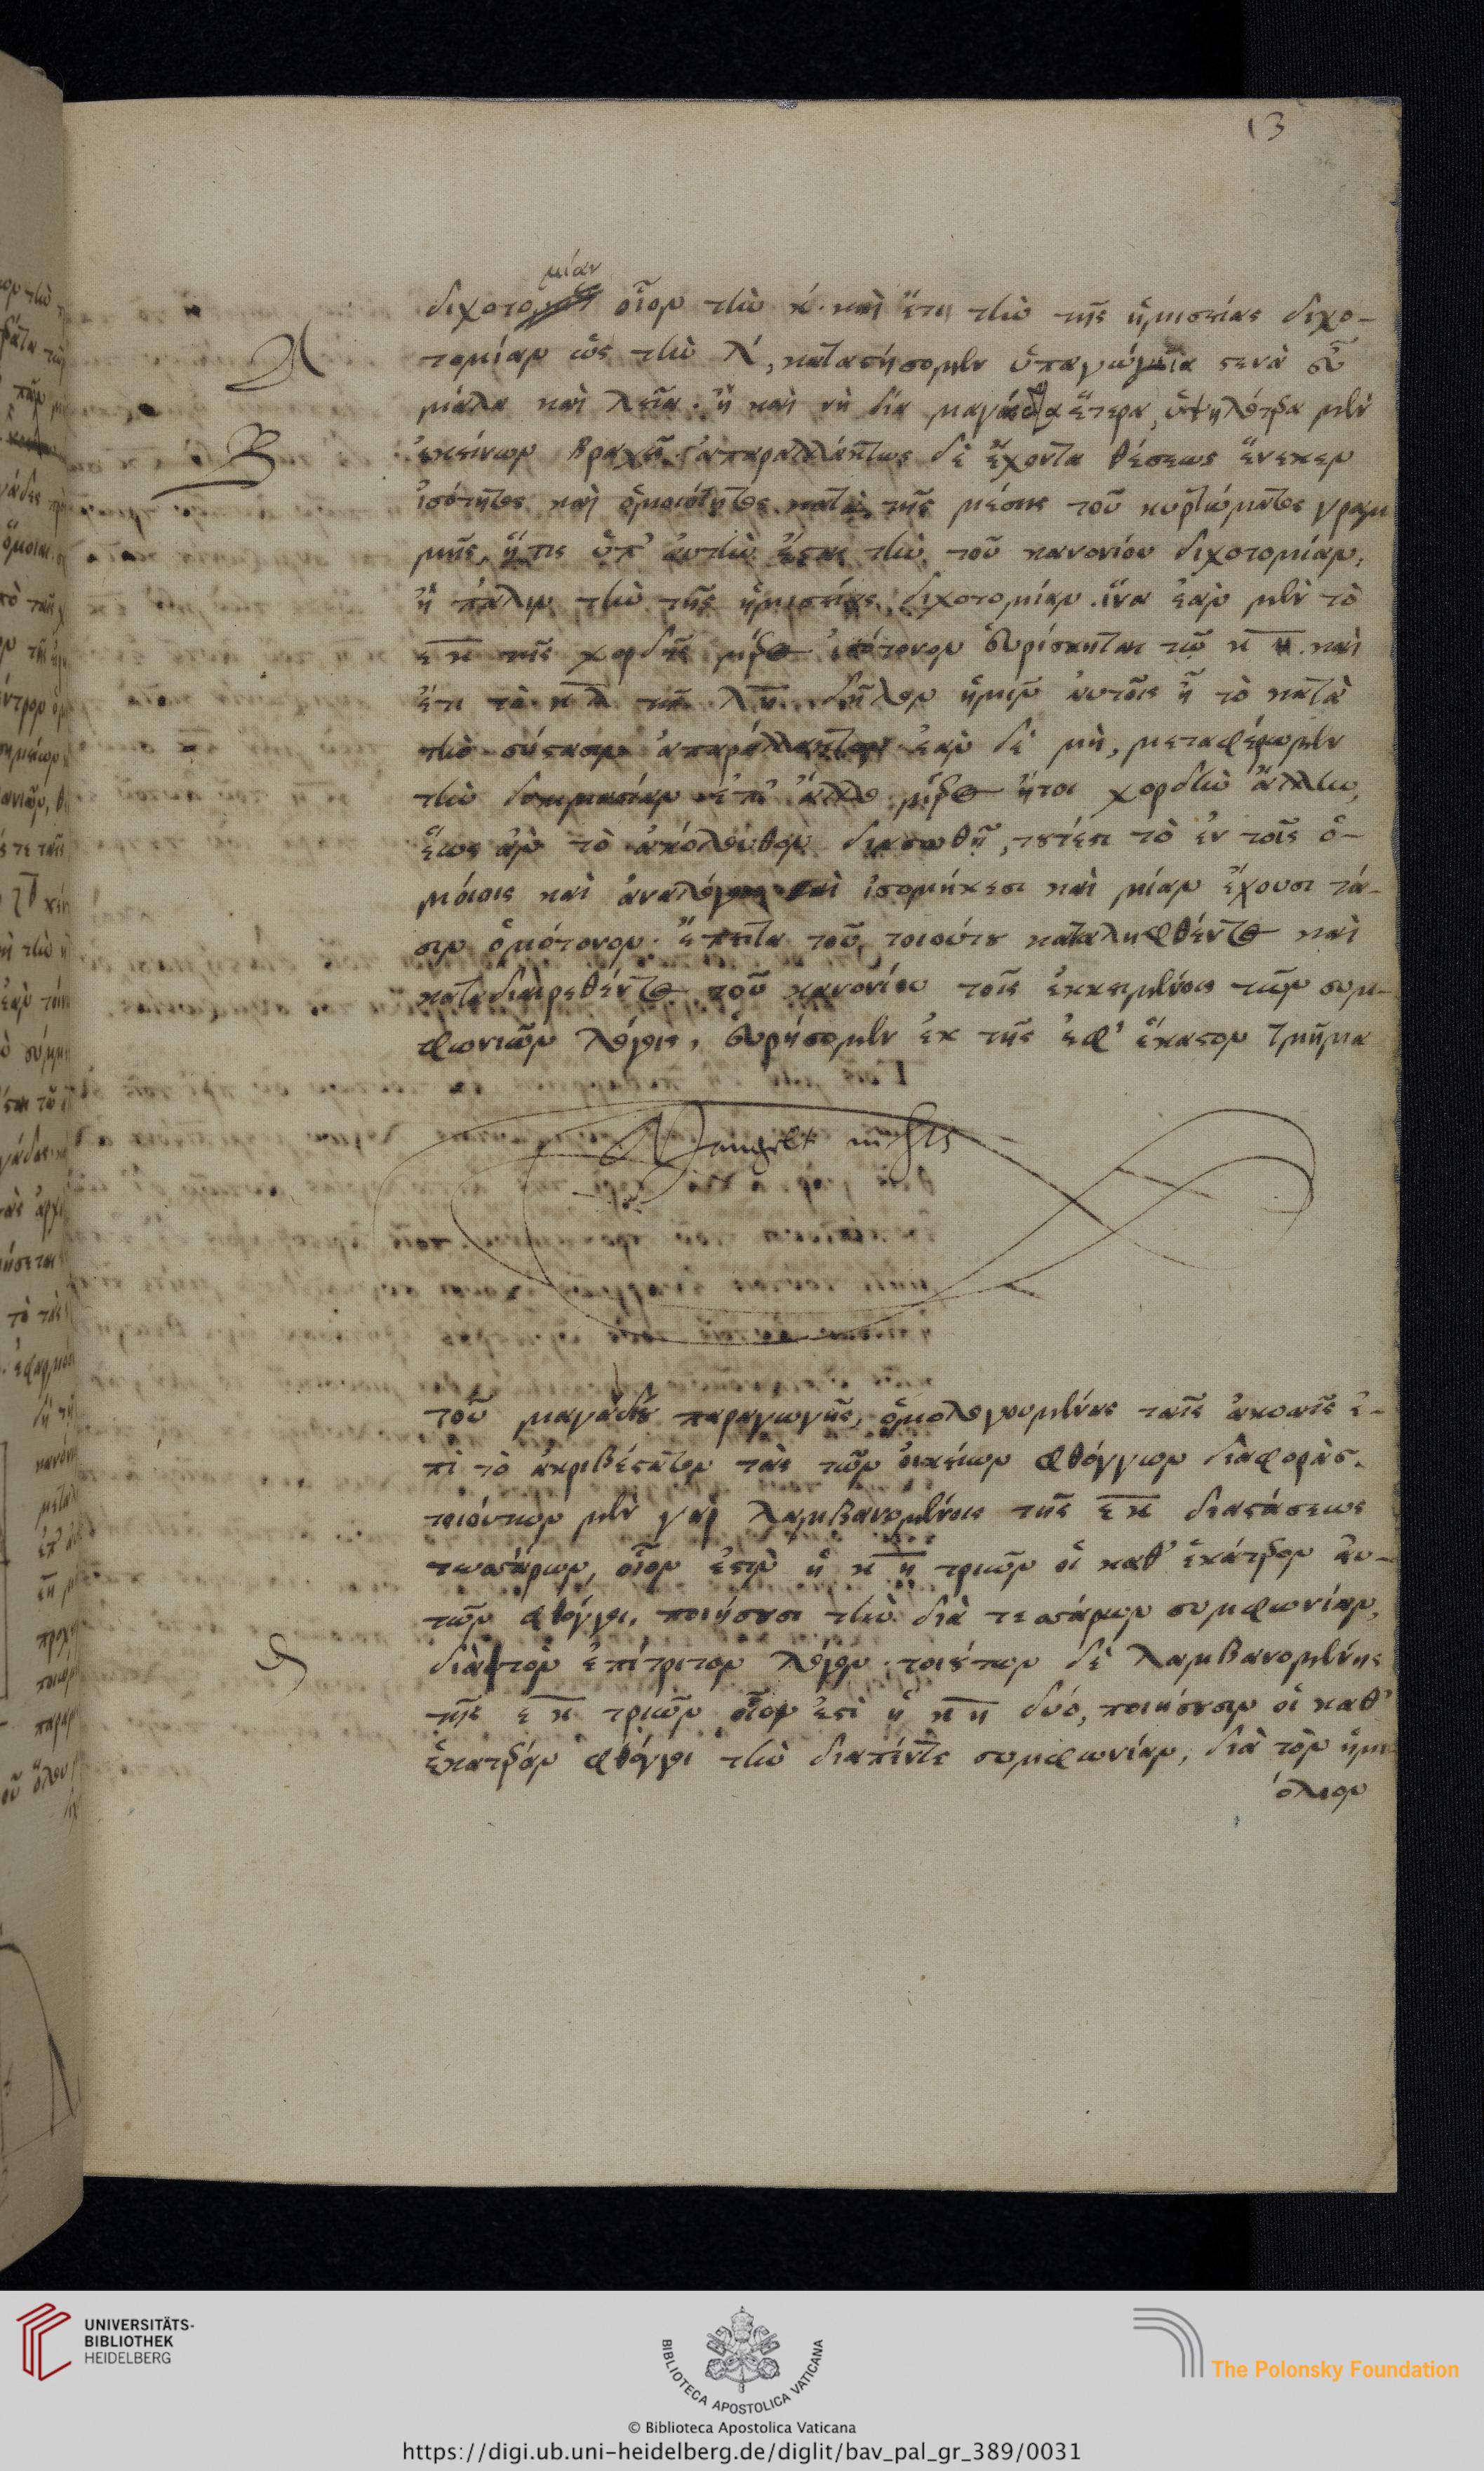 13
μίαν
διχοτο οἷον τὴν κ´. καὶ ἔτι τὴν τῆς ἡμισείας διχο-
A
τομίαν ὡς τὴν λ´, καταστήσομεν ὑπαγώγεια στενὰ εὖ
μάλα καὶ λεῖα. ἢ καὶ νὴ δία μαγάδια ἕτερα, ὑψηλότερα μὲν
B
ἐκείνων βραχεῖ. ἀπαραλλάκτως δὲ ἔχοντα θέσεως ἕνεκεν
ἰσότητος καὶ ὁμοιότητος κατὰ τῆς μέσης τοῦ κυρτώματος γραμ
μῆς, ἥτις ὑπ' αὐτὴν ἔσται τὴν τοῦ κανονίου διχοτομίαν,
ἢ πάλιν τὴν τῆς ἡμισείας διχοτομίαν. ἵνα ἐὰν μὲν τὸ
ε κ τῆς χορδῆς μέρος ἰσότονον εὑρίσκηται τῷ κ η. καὶ
ἔτι τὸ κ λ τῷ λ η. δῆλον ἡμῖν αὐτοῖς ᾖ τὸ κατὰ
τὴν σύστασιν ἀπαράλλακτον ἐὰν δὲ μὴ, μεταφέρωμεν
τὴν δοκιμασίαν ἐπ' ἄλλο μέρος ἤτοι χορδὴν ἄλλην,
ἕως ἂν τὸ ἀκόλουθον διασωθῇ, τουτέστι τὸ ἐν τοῖς ὁ-
μοίοις καὶ ἀναλόγοις καὶ ἰσομήκεσι καὶ μίαν ἔχουσι τά-
σιν ὁμότονον. ἔπειτα τοῦ τοιούτου καταληφθέντος καὶ
καταδιαιρεθέντος τοῦ κανονίου τοῖς ἐκκειμένοις τῶν συμ-
φωνιῶν λόγοις, εὑρήσομεν ἐκ τῆς ἐφ' ἕκαστον τμῆμα
Mangelt nichts
τοῦ μαγάδου παραγωγῆς, ὁμολογουμένας ταῖς ἀκοαῖς ἐ-
πὶ τὸ ἀκριβέστατον τὰς τῶν οἰκείων φθόγγων διαφοράς.
τοιούτων μὲν γὰρ λαμβανομένοις τῆς ε κ διαστάσεως
τεσσάρων, οἷον ἐστὶν ἡ κ η τριῶν οἱ καθ' ἑκάτερον αὐ-
τῶν φθόγγοι, ποιήσουσι τὴν διὰ τεσσάρων συμφωνίαν,
διὰ τὸν ἐπίτριτον λόγον. τοιούτων δὲ λαμβανομένης
τῆς ε κ τριῶν οἷον ἐστὶ ἡ κ η δύο, ποιήσουσιν οἱ καθ'
ἑκατερόν φθόγγοι τὴν διαπέντε συμφωνίαν, διὰ τὸν ἡμι
όλιον
UNIVERSITÄTS-
BIBLIOTHEK
HEIDELBERG
BIBLIOTECA APOSTOLICA VATICANA
© Biblioteca Apostolica Vaticana
The Polonsky Foundation
https://digi.ub.uni-heidelberg.de/diglit/bav_pal_gr_389/0031